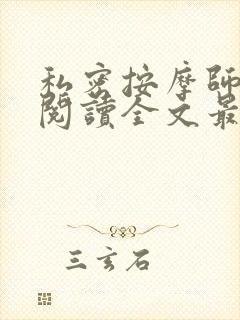 私密按摩師
閱讀全文最
三玄石